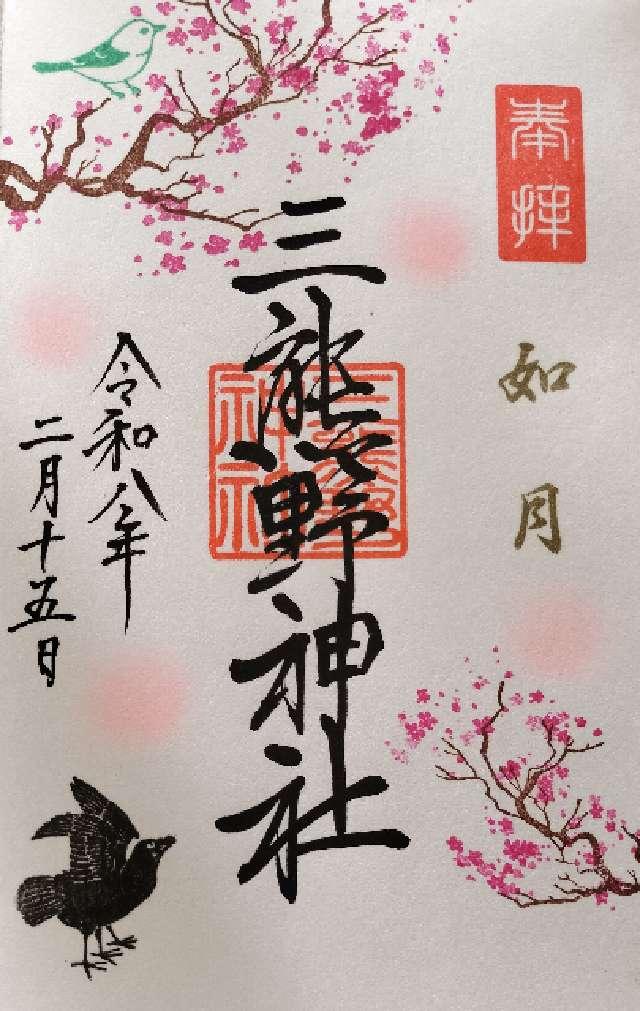 奉拝
如月
三熊野神社
三熊野神社
令和八年
二月十五日